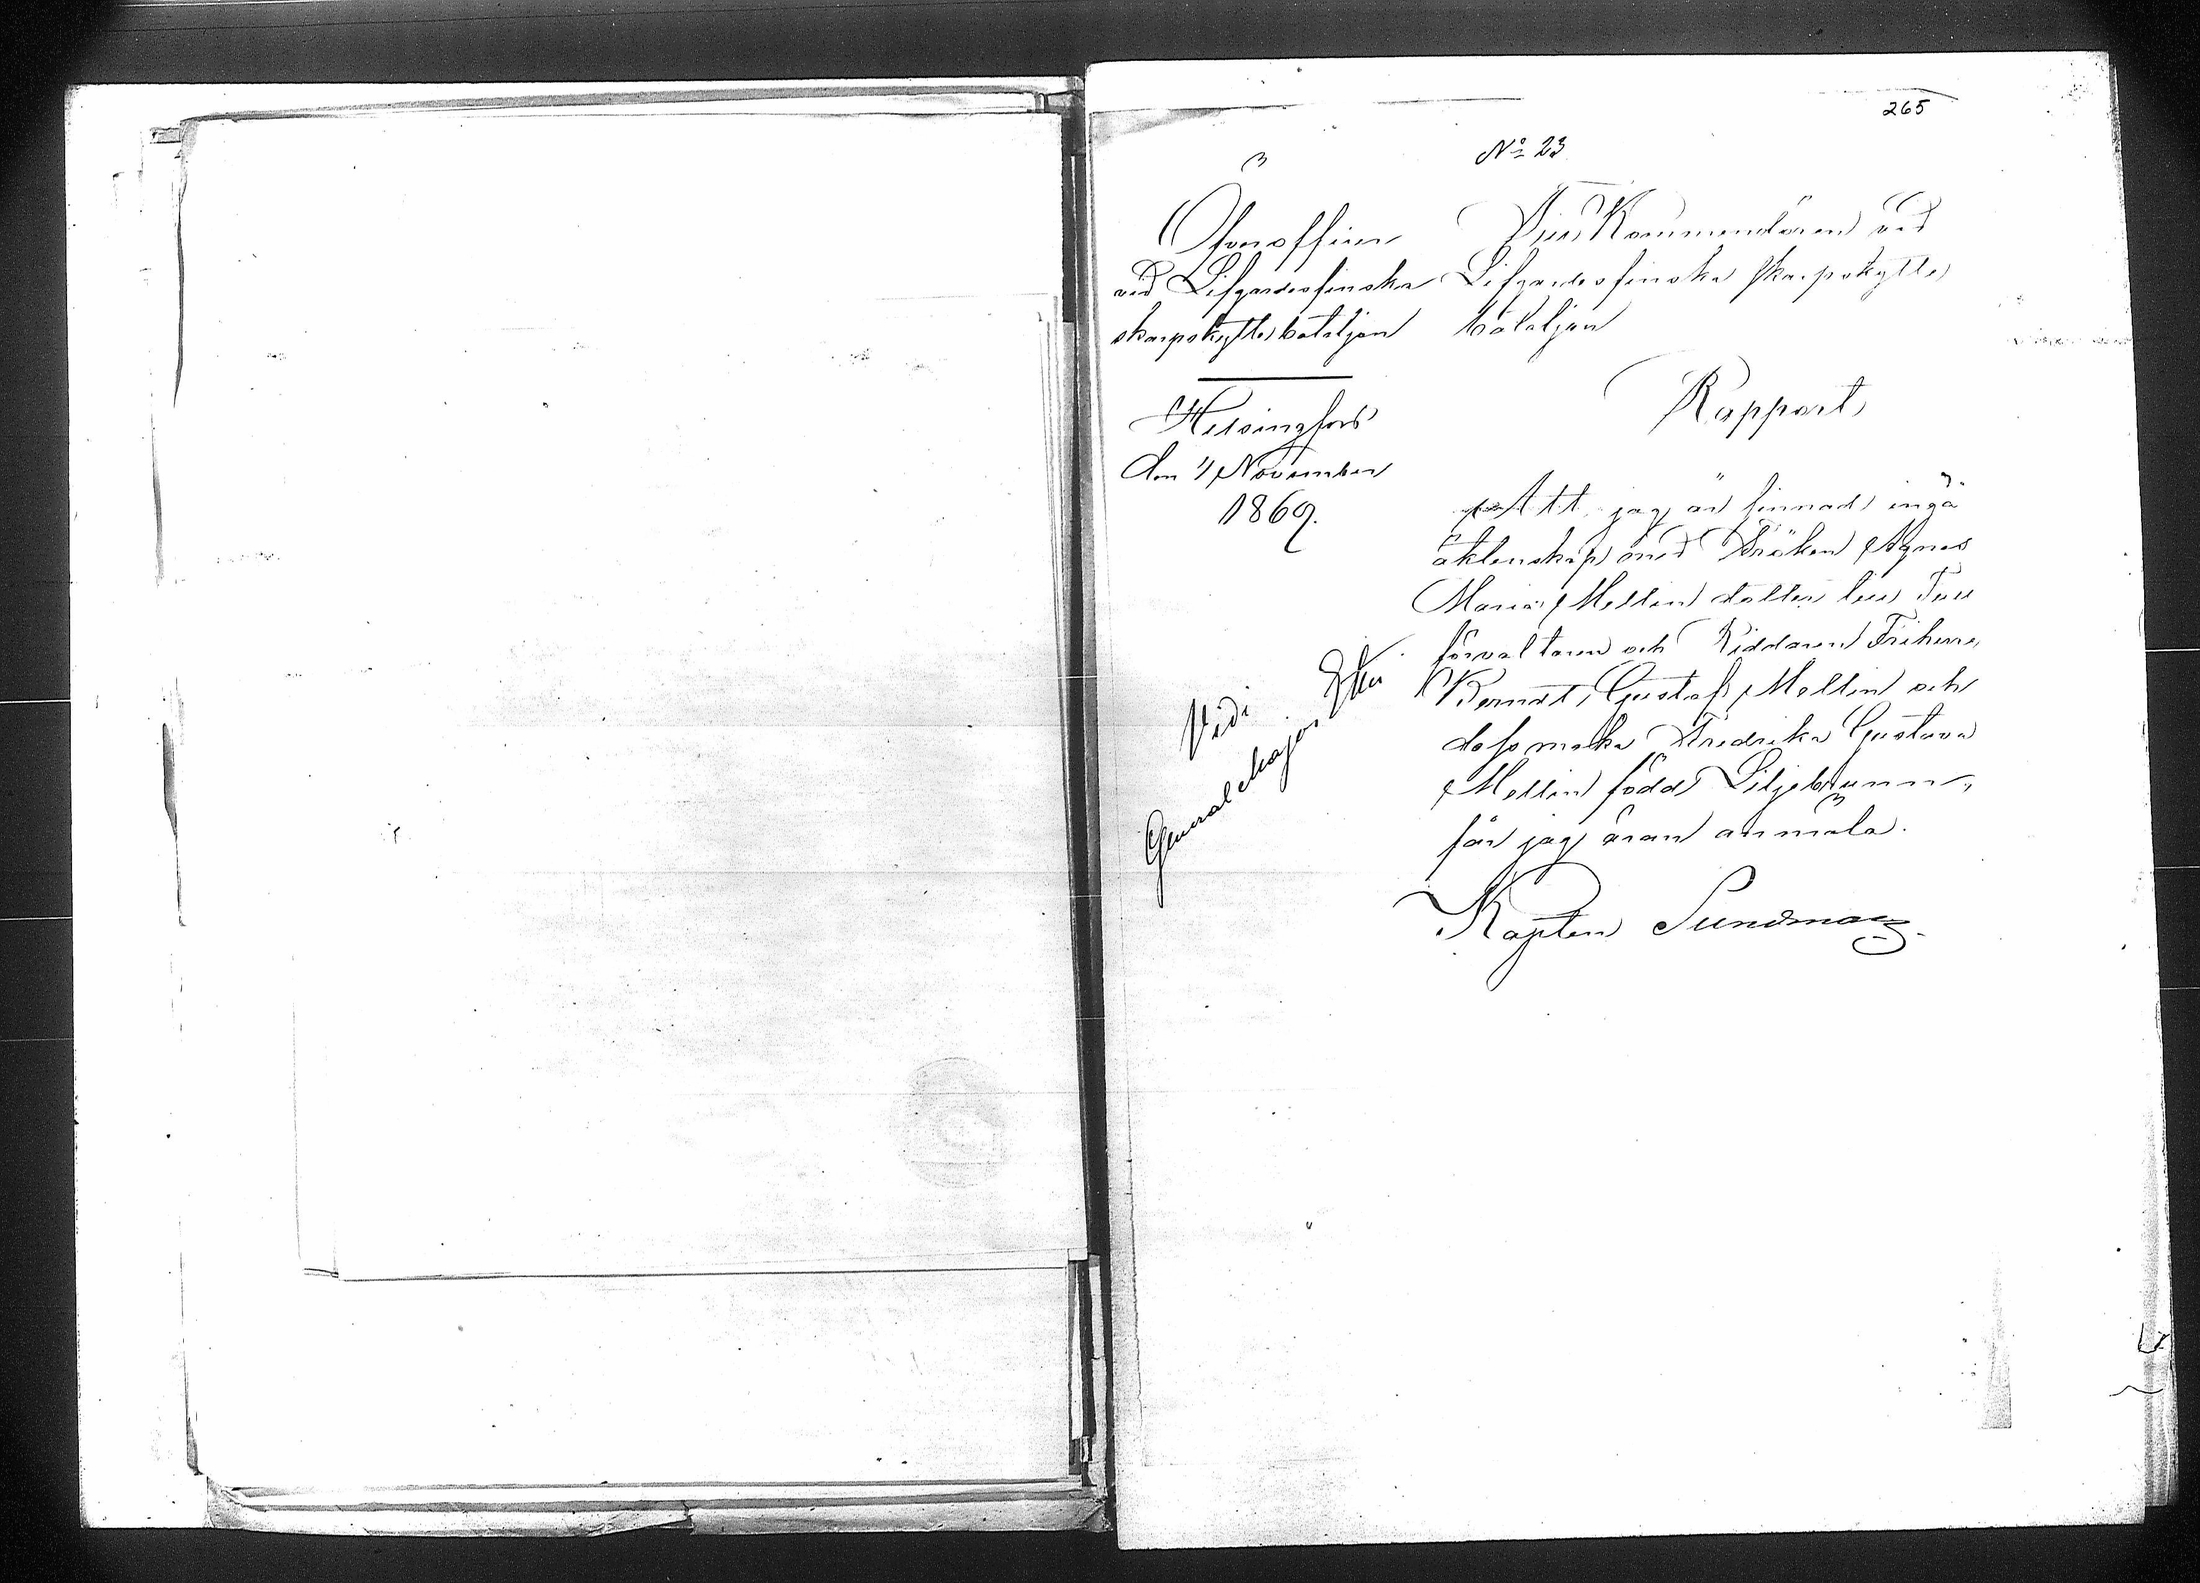 265
No 23
Öfverofficer
vid Lifgardesfinska
skarpskyttebataljon
Helsingfors
den 4 November
1869.
Till Kommendören vid
Lifgardesfinska skarpskytte
bataljon
Rapport
Att jag är sinnad ingå
äktenskap med Fröken Agnes
Maria Mellin dotter till Tull
förvaltaren och Riddaren Friherre
Berndt Gustaf Mellin och
dess maka Fredrika Gustava
Mellin född Liljebrunn,
får jag äran anmäla.
Kapten Sundman
Vidi
General Major